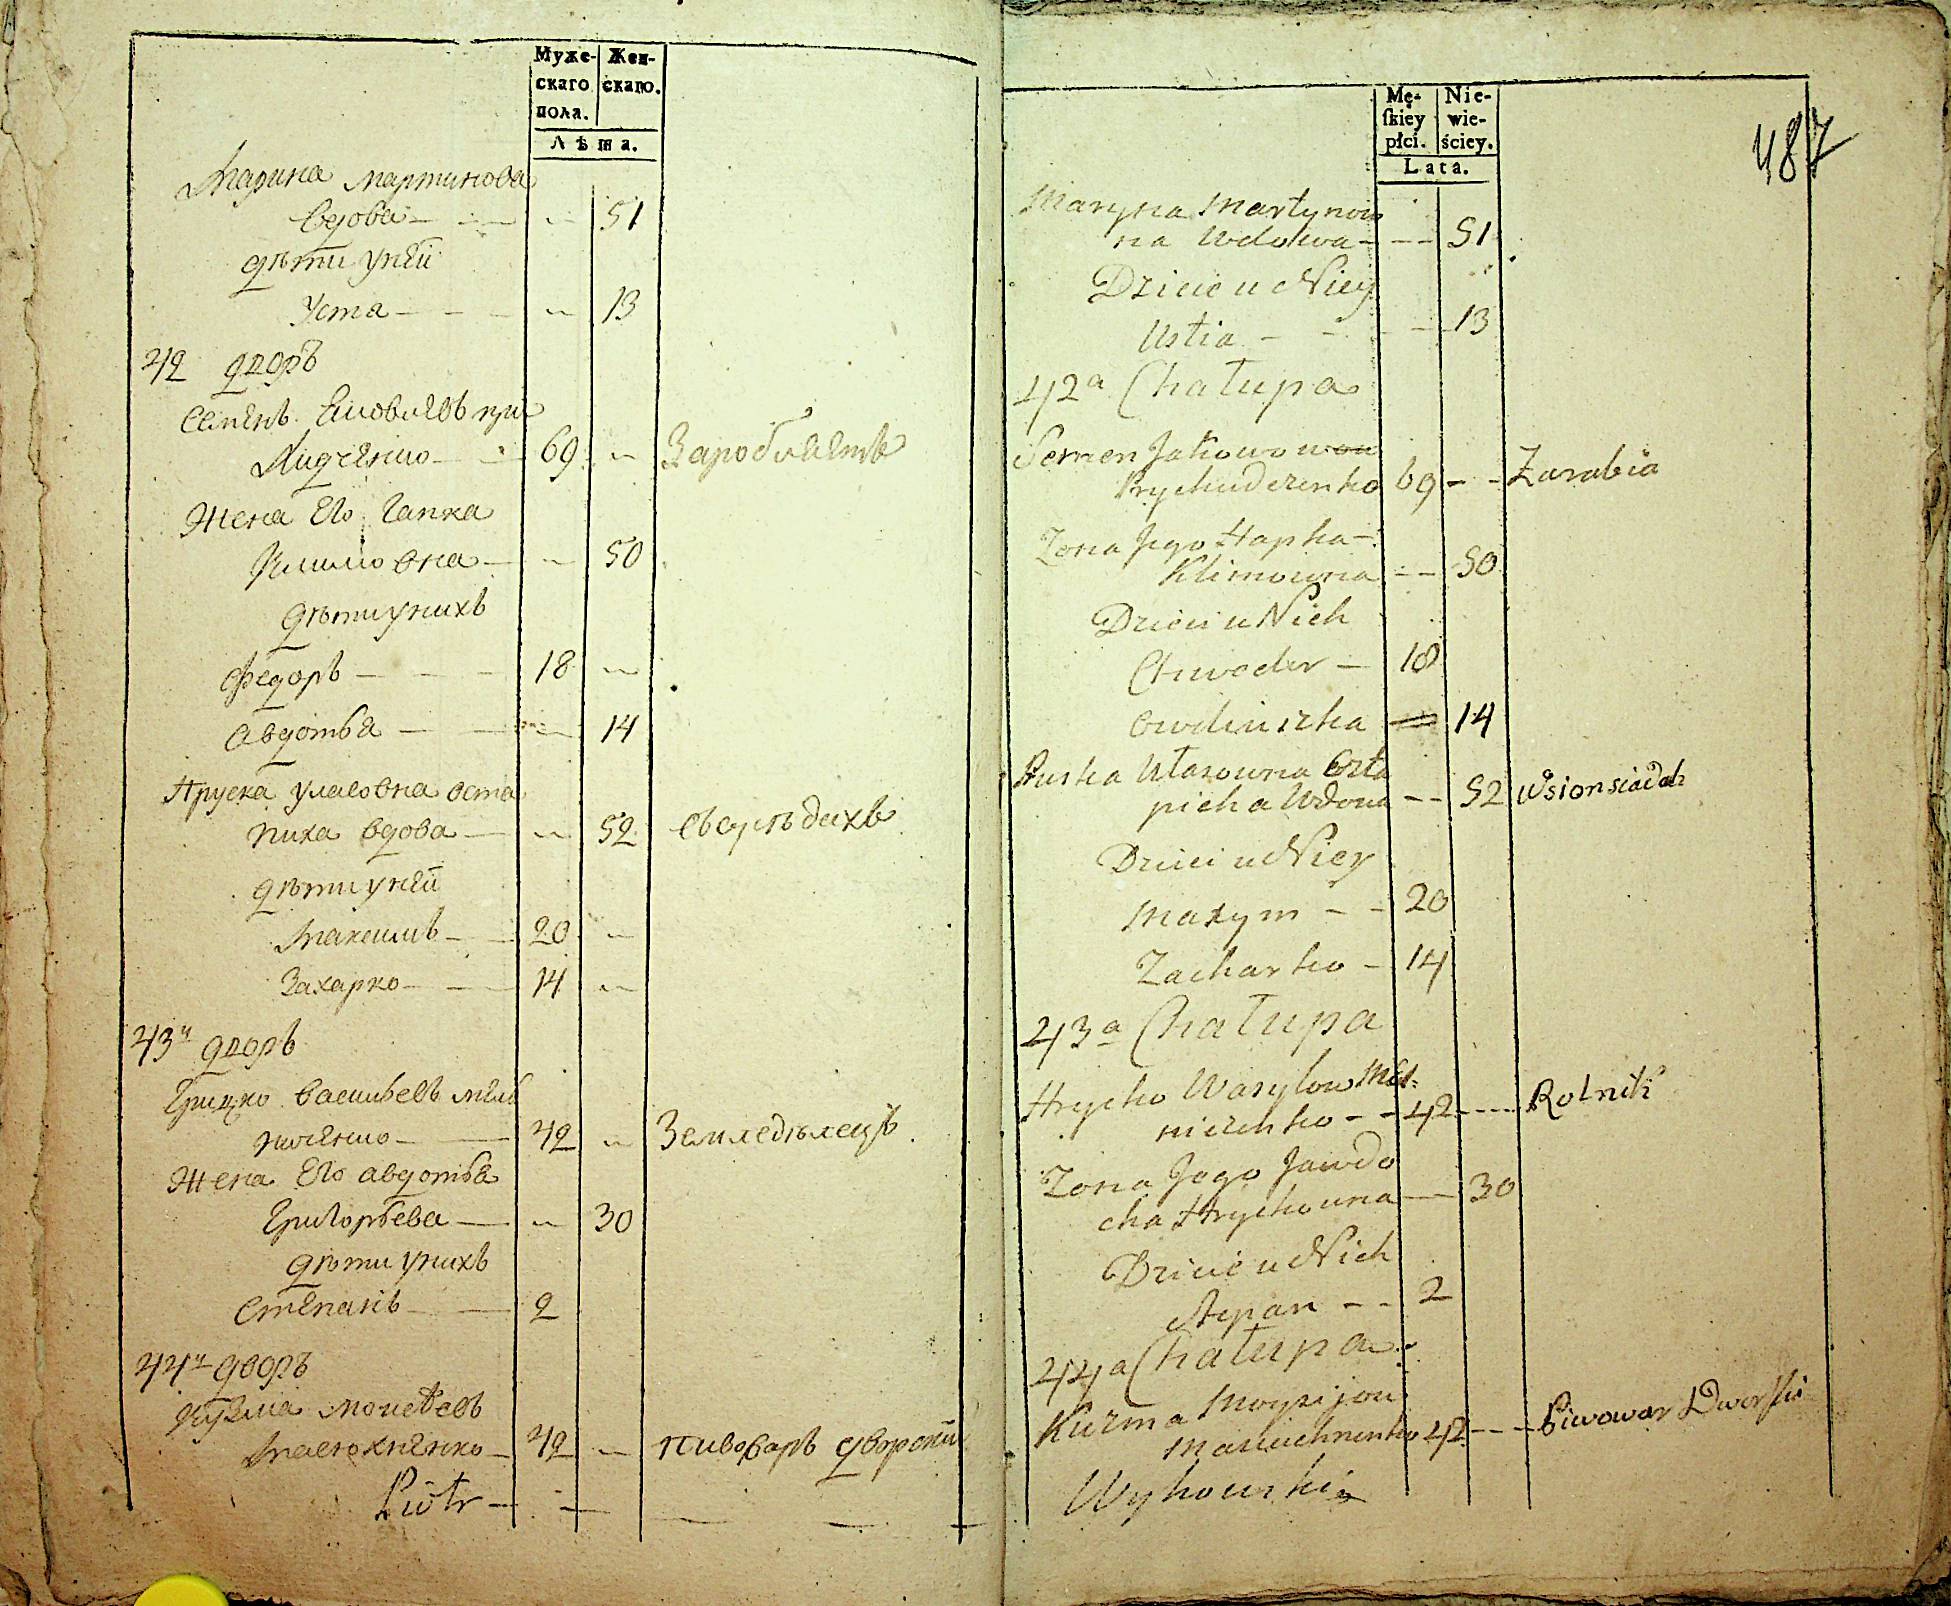 Муже-
скаго
пола.
Жен-
скаго.
Лѣта.
Марина Мартинова
вдова — — 51
дѣти унѣй
Уста — — 13
42 дворъ
Семенъ Яковлевъ при
69 Заробляетъ
Жена Его Гапка
Климовна — 50
дѣти унихъ
Федоръ — — 18
Авдотья — — 14
Пруска Уласовна Оста
пиха вдова — 52 въ сусѣдахъ
дѣти унѣй
Максимъ — 20
Захарко — 14
43й дворъ
Грицко Васильевъ Мель
42 Земледѣлецъ
Жена Его Авдотья
Григорьева — 30
дѣти унихъ
Степанъ — 2
44й дворъ
Кузма Моисѣевъ
42 Пивоваръ дворский
Piotr —
Mę-
ſkiey
płci.
Nie-
wie-
ściey.
Lata.
487
Maryna Martynow
na Wdowa — — 51
Dzieie u Niey
Ustia — — 13
42a Chałupa
Semen Jakowow
Prychudczenko 69 — Zarabia
Zona Jego Hapka —
Klimowna — 50
Dzieci u Nich
Chwedor — 18
14
Pruska Ułasowna Osta
picha Wdowa — 52 W Sionsiadach
Dzieci u Niey
Maxym — — 20
Zacharko — 14
43a Chałupa
Hrycko Wasylow Mel-
niczenko — — 42 — Rolnik
Zona Jego Jawdo
cha Hryckowna — 30
Dzieie u Nich
Stepan — — 2
44a Chałupa
Kuzma Moysijow
42 — Piwowar Dworski
Wyhowski